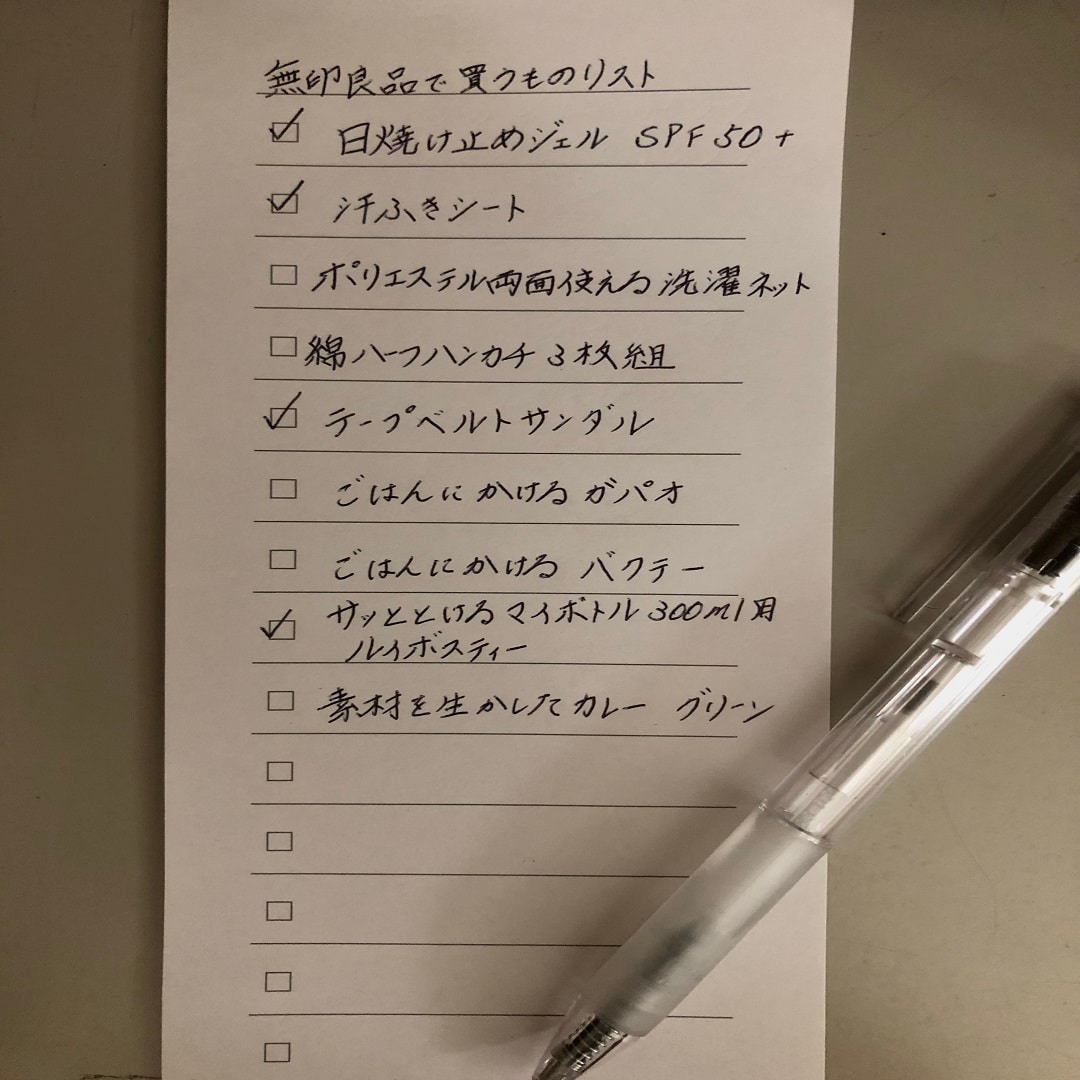 無印良品で買うものリスト
☑ 日焼け止めジェル SPF50+
☑ 汗ふきシート
☐ ポリエステル両面使える洗濯ネット
☐ 綿ハーフハンカチ3枚組
☑ テープベルトサンダル
☐ ごはんにかける ガパオ
☐ ごはんにかける バクテー
☑ サッととけるマイボトル300ml用
ルイボスティー
☐ 素材を生かしたカレー グリーン
☐
☐
☐
☐
☐